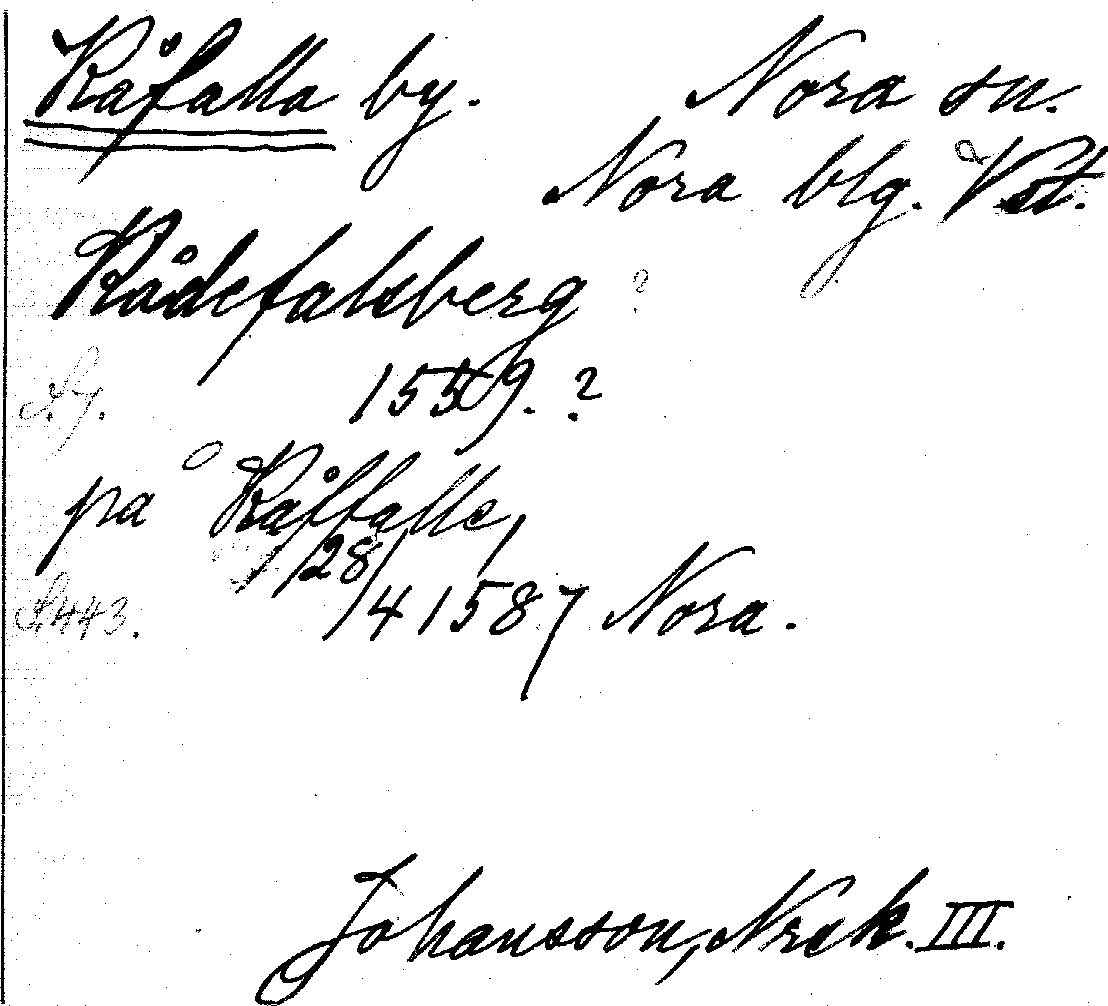 Råfalla by. Nora sn.
Nora blg. Vst.
Rådefalsberg ?
1559. ?
på Råffalle,
28/4 1587 Nora.
S. 443.
Johansson, Nrck. III.